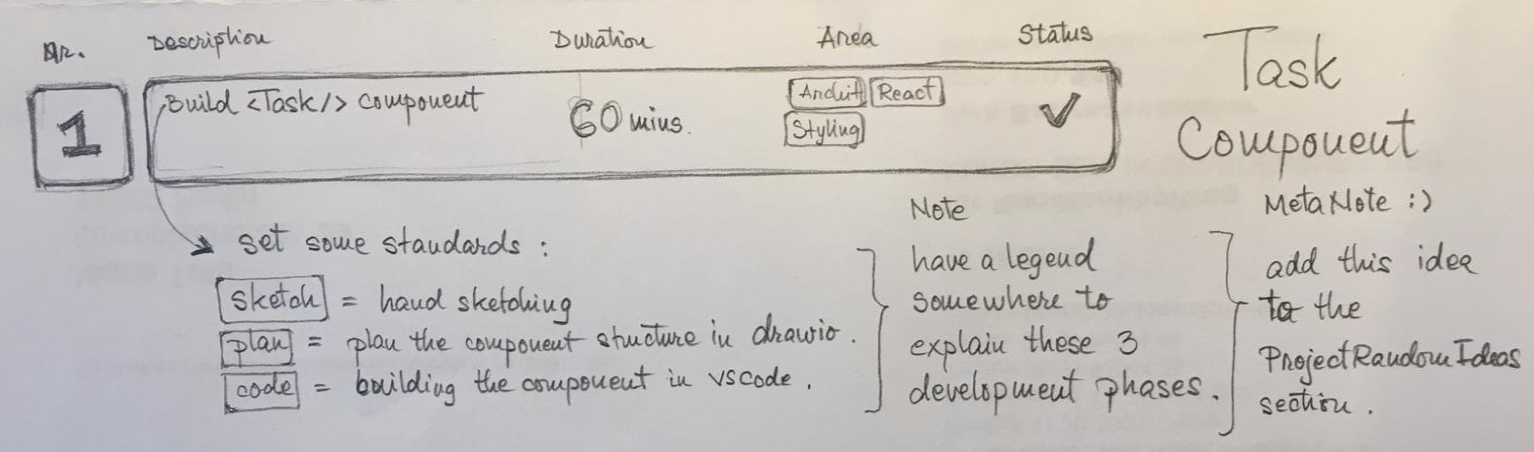 Nr. Description Duration Area Status
Task
Component
1
Build <Task/> component
60 mins.
Archit React
Styling
set some standards :
sketch = hand sketching
plan = plan the component structure in drawio .
code = building the component in vscode .
Note
have a legend
somewhere to
explain these 3
development phases .
MetaNote :)
add this idea
to the
ProjectRandomIdeas
section .